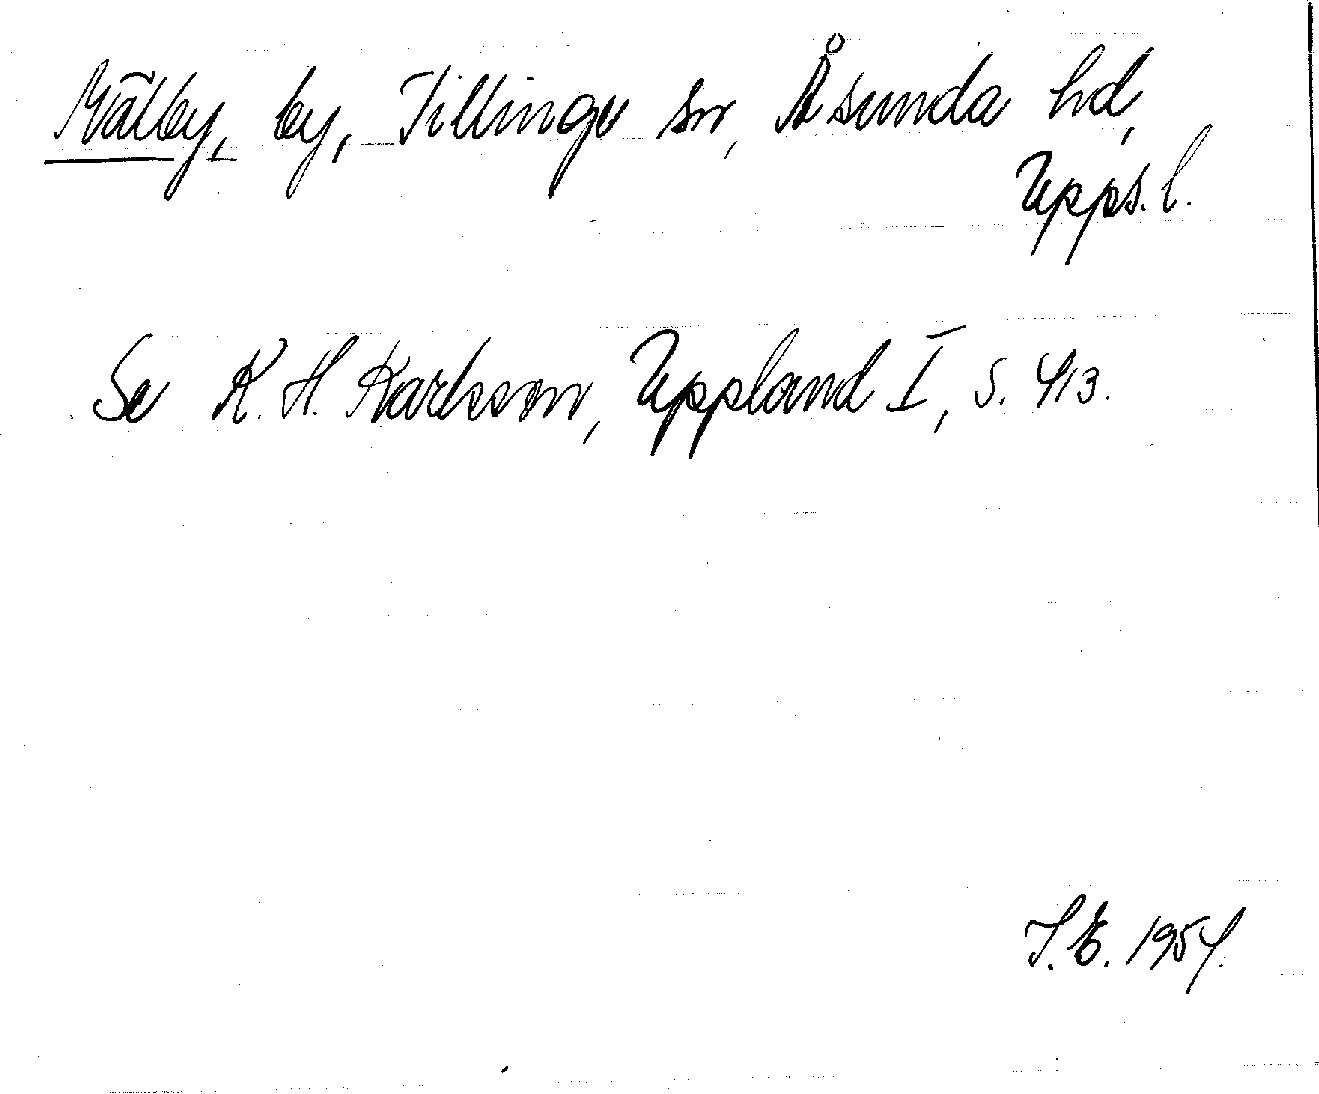 Mälby, by, Tillinge sn, Åsunda hd,
Upps. l.
Se K. H. Karlsson, Uppland I, s. 413.
I. E. 1954.